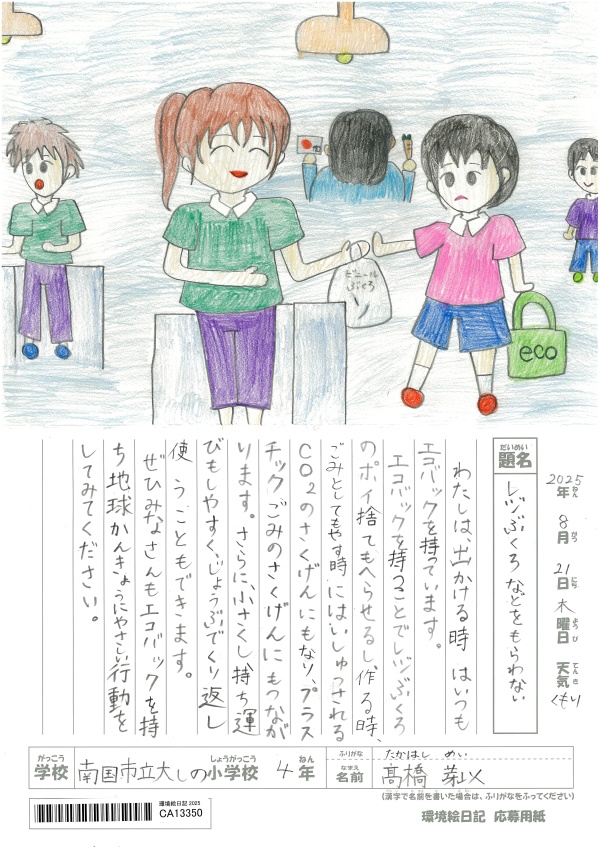 ビニール
ぶくろ
eco
2025年 8月 21日 木曜日 天気 くもり
ねん がつ にち ようび てんき
だいめい
題名
レジぶくろなどをもらわない
わたしは、出かける時はいつも
エコバックを持っています。
エコバックを持つことでレジぶくろ
のポイ捨てもへらせるし、作る時、
ごみとしてもやす時にはいしゅつされる
CO2のさくげんにもなり、プラス
チックごみのさくげんにもつなが
ります。さらに、小さくし、持ち運
びもしやすく、じょうぶでくり返し
使うこともできます。
ぜひみなさんもエコバックを持
ち地球かんきょうにやさしい行動を
してみてください。
がっこう しょうがっこう ねん
学校 南国市立大しの小学校 4年
ふりがな たかはし めい
なまえ
名前 高橋 芽以
(漢字で名前を書いた場合は、ふりがなをふってください)
環境絵日記 2025
CA13350
環境絵日記 応募用紙